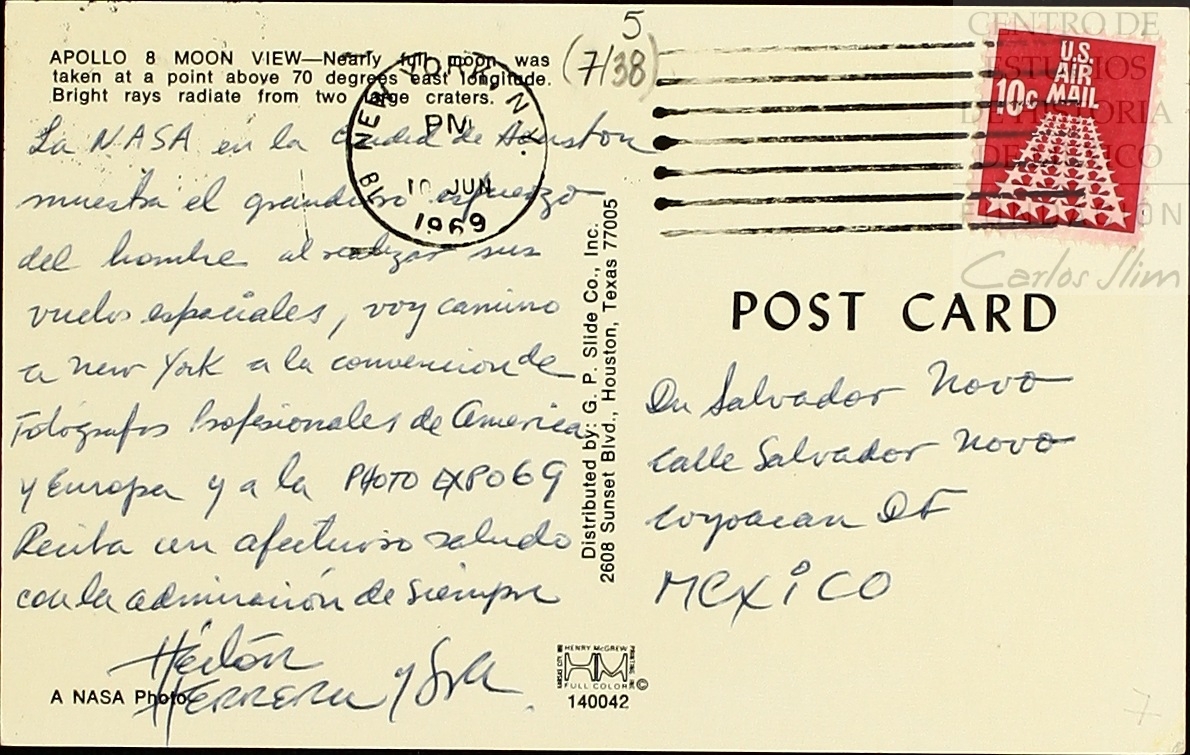 5
(7/38)
APOLLO 8 MOON VIEW—Nearly full moon was
taken at a point above 70 degrees east longitude.
Bright rays radiate from two large craters.
La NASA en la Ciudad de Houston
muestra el grandioso esfuerzo
del hombre al realizar sus
vuelos espaciales, voy camino
a New York a la convencion de
Fotógrafos Profesionales de America
y Europa y a la PHOTO EXPO 69
Reciba un afectuoso saludo
con la admiración de siempre
Héctor
HERRERA y Sra
A NASA Photo
NEW YORK, N.
PM
10 JUN
1969
Distributed by: G. P. Slide Co., Inc.
2608 Sunset Blvd., Houston, Texas 77005
HENRY McGREW
PRINTING, INC.
HM
FULL COLOR ©
140042
U.S.
AIR
MAIL
10c
CENTRO DE
ESTUDIOS
DE HISTORIA
DE MÉXICO
FUNDACIÓN
Carlos Slim
POST CARD
Dn Salvador Novo
Calle Salvador Novo
Coyoacan DF
MEXICO
7